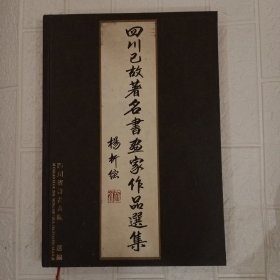 四川已故著名書画家作品選集
楊析綜
四川省詩書畫院 選編